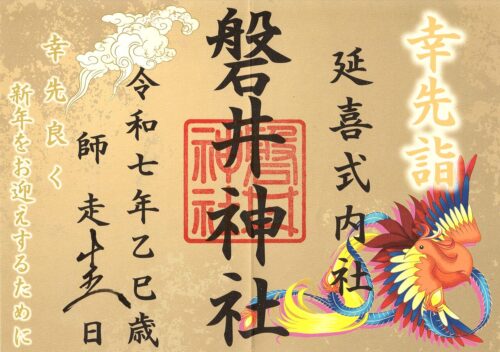 幸先詣
延喜式内社
磐井神社
磐井神社
令和七年乙巳歳
師走
日
幸先良く
新年をお迎えするために